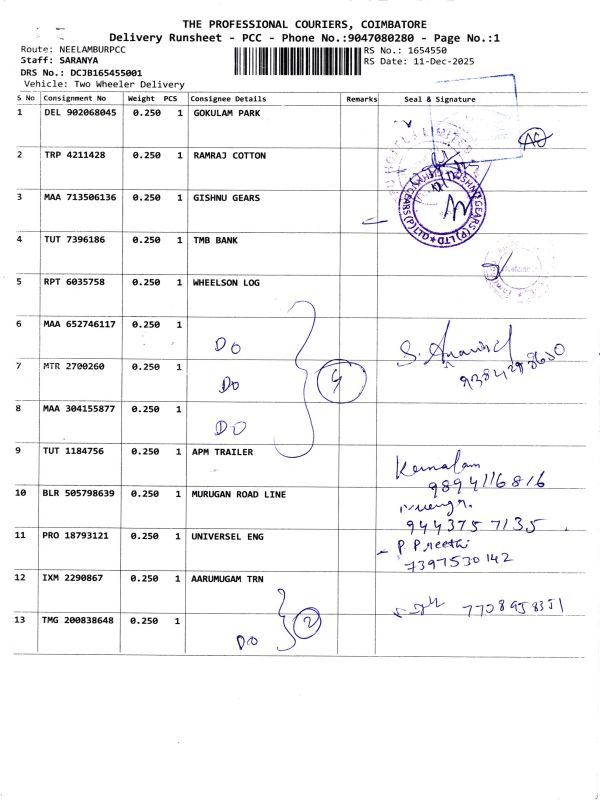 THE PROFESSIONAL COURIERS, COIMBATORE
Delivery Runsheet - PCC - Phone No.:9047080280 - Page No.:1
Route: NEELAMBURPCC RS No.: 1654550
Staff: SARANYA RS Date: 11-Dec-2025
DRS No.: DCJB165455001
Vehicle: Two Wheeler Delivery
S No Consignment No Weight PCS Consignee Details Remarks Seal & Signature
1 DEL 902068045 0.250 1 GOKULAM PARK
2 TRP 4211428 0.250 1 RAMRAJ COTTON
3 MAA 713506136 0.250 1 GISHNU GEARS
4 TUT 7396186 0.250 1 TMB BANK
5 RPT 6035758 0.250 1 WHEELSON LOG
6 MAA 652746117 0.250 1 DO
7 MTR 2700260 0.250 1 DO
8 MAA 304155877 0.250 1 DO
S. Aravind
9384298630
9 TUT 1184756 0.250 1 APM TRAILER
9894116816
10 BLR 505798639 0.250 1 MURUGAN ROAD LINE
9443757135
11 PRO 18793121 0.250 1 UNIVERSEL ENG
P. Preethi
7397530142
12 IXM 2290867 0.250 1 AARUMUGAM TRN
7708958351
13 TMG 200838648 0.250 1 DO
2